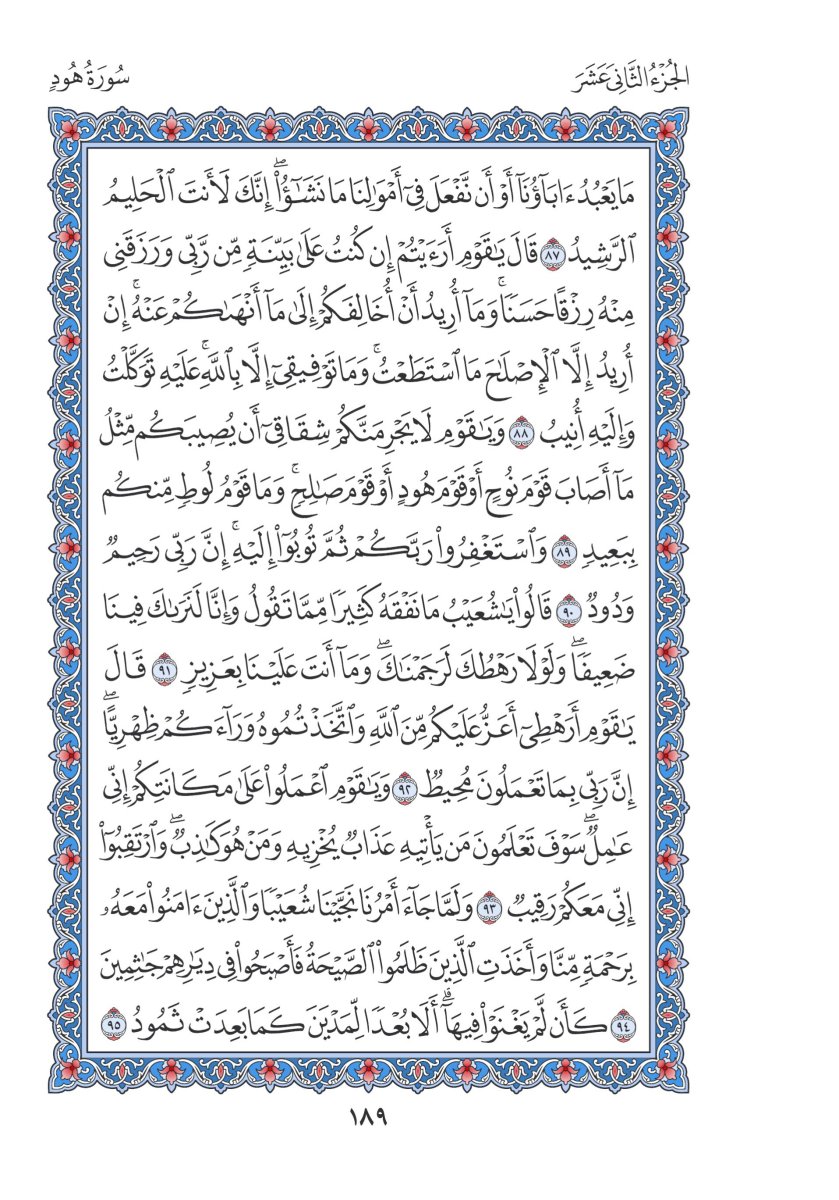 الجُزْءُ الثَّانِىَ عَشَرَ
سُورَةُ هُودٍ
مَا يَعْبُدُ ءَابَآؤُنَآ أَوْ أَن نَّفْعَلَ فِىٓ أَمْوَٰلِنَا مَا نَشَـٰٓؤُا۟ ۖ إِنَّكَ لَأَنتَ ٱلْحَلِيمُ
ٱلرَّشِيدُ ٨٧ قَالَ يَـٰقَوْمِ أَرَءَيْتُمْ إِن كُنتُ عَلَىٰ بَيِّنَةٍ مِّن رَّبِّى وَرَزَقَنِى
مِنْهُ رِزْقًا حَسَنًا ۚ وَمَآ أُرِيدُ أَنْ أُخَالِفَكُمْ إِلَىٰ مَآ أَنْهَىٰكُمْ عَنْهُ ۚ إِنْ
أُرِيدُ إِلَّا ٱلْإِصْلَـٰحَ مَا ٱسْتَطَعْتُ ۚ وَمَا تَوْفِيقِىٓ إِلَّا بِٱللَّهِ ۚ عَلَيْهِ تَوَكَّلْتُ
وَإِلَيْهِ أُنِيبُ ٨٨ وَيَـٰقَوْمِ لَا يَجْرِمَنَّكُمْ شِقَاقِىٓ أَن يُصِيبَكُم مِّثْلُ
مَآ أَصَابَ قَوْمَ نُوحٍ أَوْ قَوْمَ هُودٍ أَوْ قَوْمَ صَـٰلِحٍ ۚ وَمَا قَوْمُ لُوطٍ مِّنكُم
بِبَعِيدٍ ٨٩ وَٱسْتَغْفِرُوا۟ رَبَّكُمْ ثُمَّ تُوبُوٓا۟ إِلَيْهِ ۚ إِنَّ رَبِّى رَحِيمٌ
وَدُودٌ ٩٠ قَالُوا۟ يَـٰشُعَيْبُ مَا نَفْقَهُ كَثِيرًا مِّمَّا تَقُولُ وَإِنَّا لَنَرَىٰكَ فِينَا
ضَعِيفًا ۖ وَلَوْلَا رَهْطُكَ لَرَجَمْنَـٰكَ ۖ وَمَآ أَنتَ عَلَيْنَا بِعَزِيزٍ ٩١ قَالَ
يَـٰقَوْمِ أَرَهْطِىٓ أَعَزُّ عَلَيْكُم مِّنَ ٱللَّهِ وَٱتَّخَذْتُمُوهُ وَرَآءَكُمْ ظِهْرِيًّا ۖ
إِنَّ رَبِّى بِمَا تَعْمَلُونَ مُحِيطٌ ٩٢ وَيَـٰقَوْمِ ٱعْمَلُوا۟ عَلَىٰ مَكَانَتِكُمْ إِنِّى
عَـٰمِلٌ ۖ سَوْفَ تَعْلَمُونَ مَن يَأْتِيهِ عَذَابٌ يُخْزِيهِ وَمَنْ هُوَ كَـٰذِبٌ ۖ وَٱرْتَقِبُوٓا۟
إِنِّى مَعَكُمْ رَقِيبٌ ٩٣ وَلَمَّا جَآءَ أَمْرُنَا نَجَّيْنَا شُعَيْبًا وَٱلَّذِينَ ءَامَنُوا۟ مَعَهُۥ
بِرَحْمَةٍ مِّنَّا وَأَخَذَتِ ٱلَّذِينَ ظَلَمُوا۟ ٱلصَّيْحَةُ فَأَصْبَحُوا۟ فِى دِيَـٰرِهِمْ جَـٰثِمِينَ
٩٤ كَأَن لَّمْ يَغْنَوْا۟ فِيهَآ ۗ أَلَا بُعْدًا لِّمَدْيَنَ كَمَا بَعِدَتْ ثَمُودُ ٩٥
١٨٩